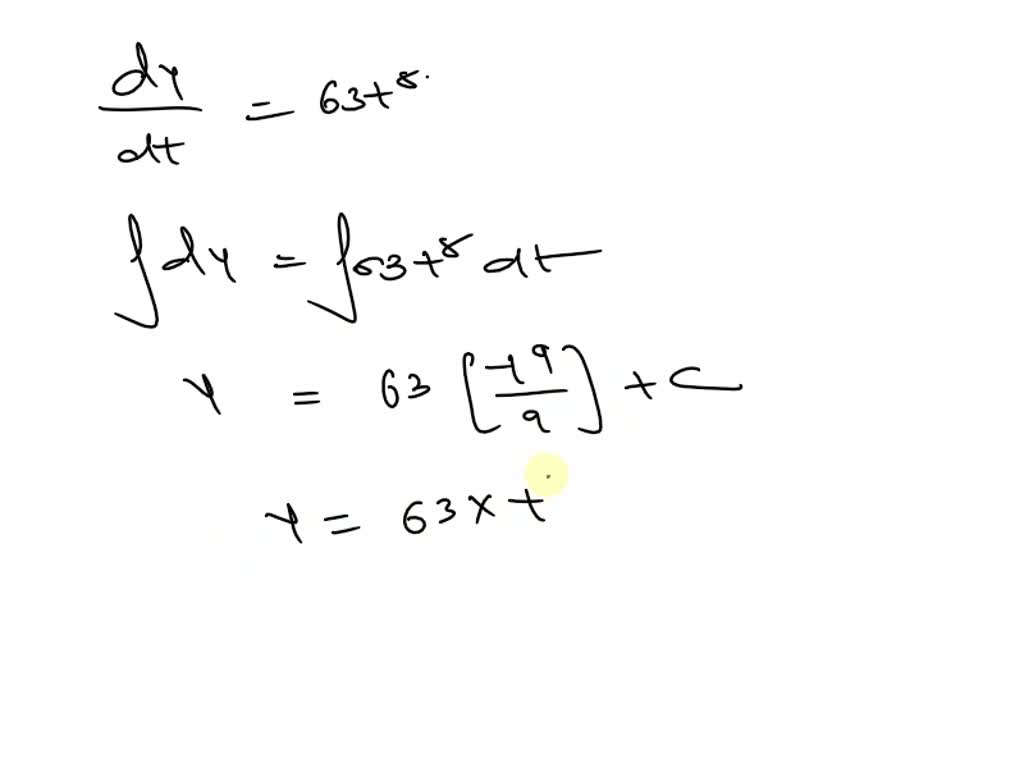 dy/dt = 63t⁸
∫dy = ∫63t⁸ dt
y = 63 [t⁹/9] + C
y = 63 x t